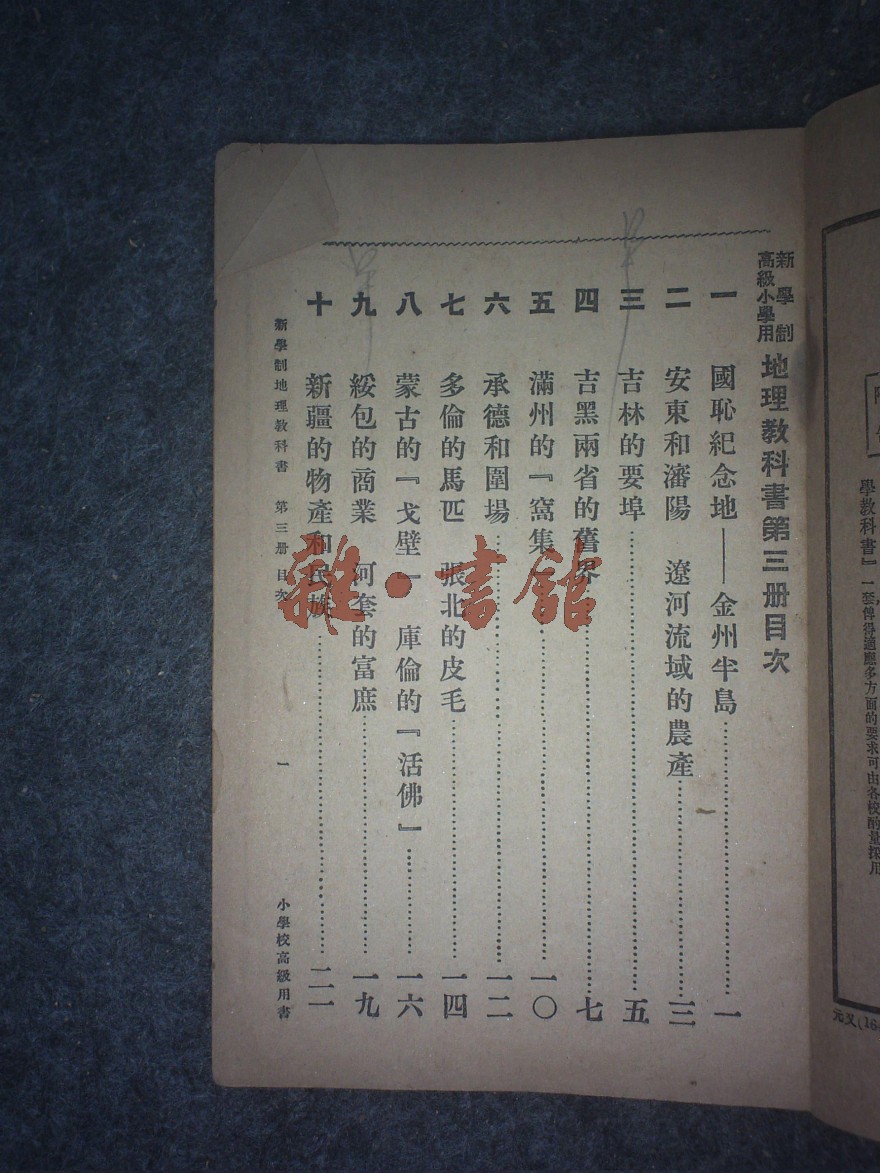 學教科書』一套俾得適應多方面的要求可由各校酌量採用
新學制
高級小學用
地理教科書第三册目次
一 國恥紀念地——金州半島……一
二 安東和瀋陽 遼河流域的農產……三
三 吉林的要埠……五
四 吉黑兩省的舊界……七
五 滿州的『窩集』……一〇
六 承德和圍場……一二
七 多倫的馬匹 張北的皮毛……一四
八 蒙古的『戈壁』 庫倫的『活佛』……一六
九 綏包的商業 河套的富庶……一九
十 新疆的物產和民族……二一
新學制地理教科書 第三册 目次 一 小學校高級用書
雜·書館